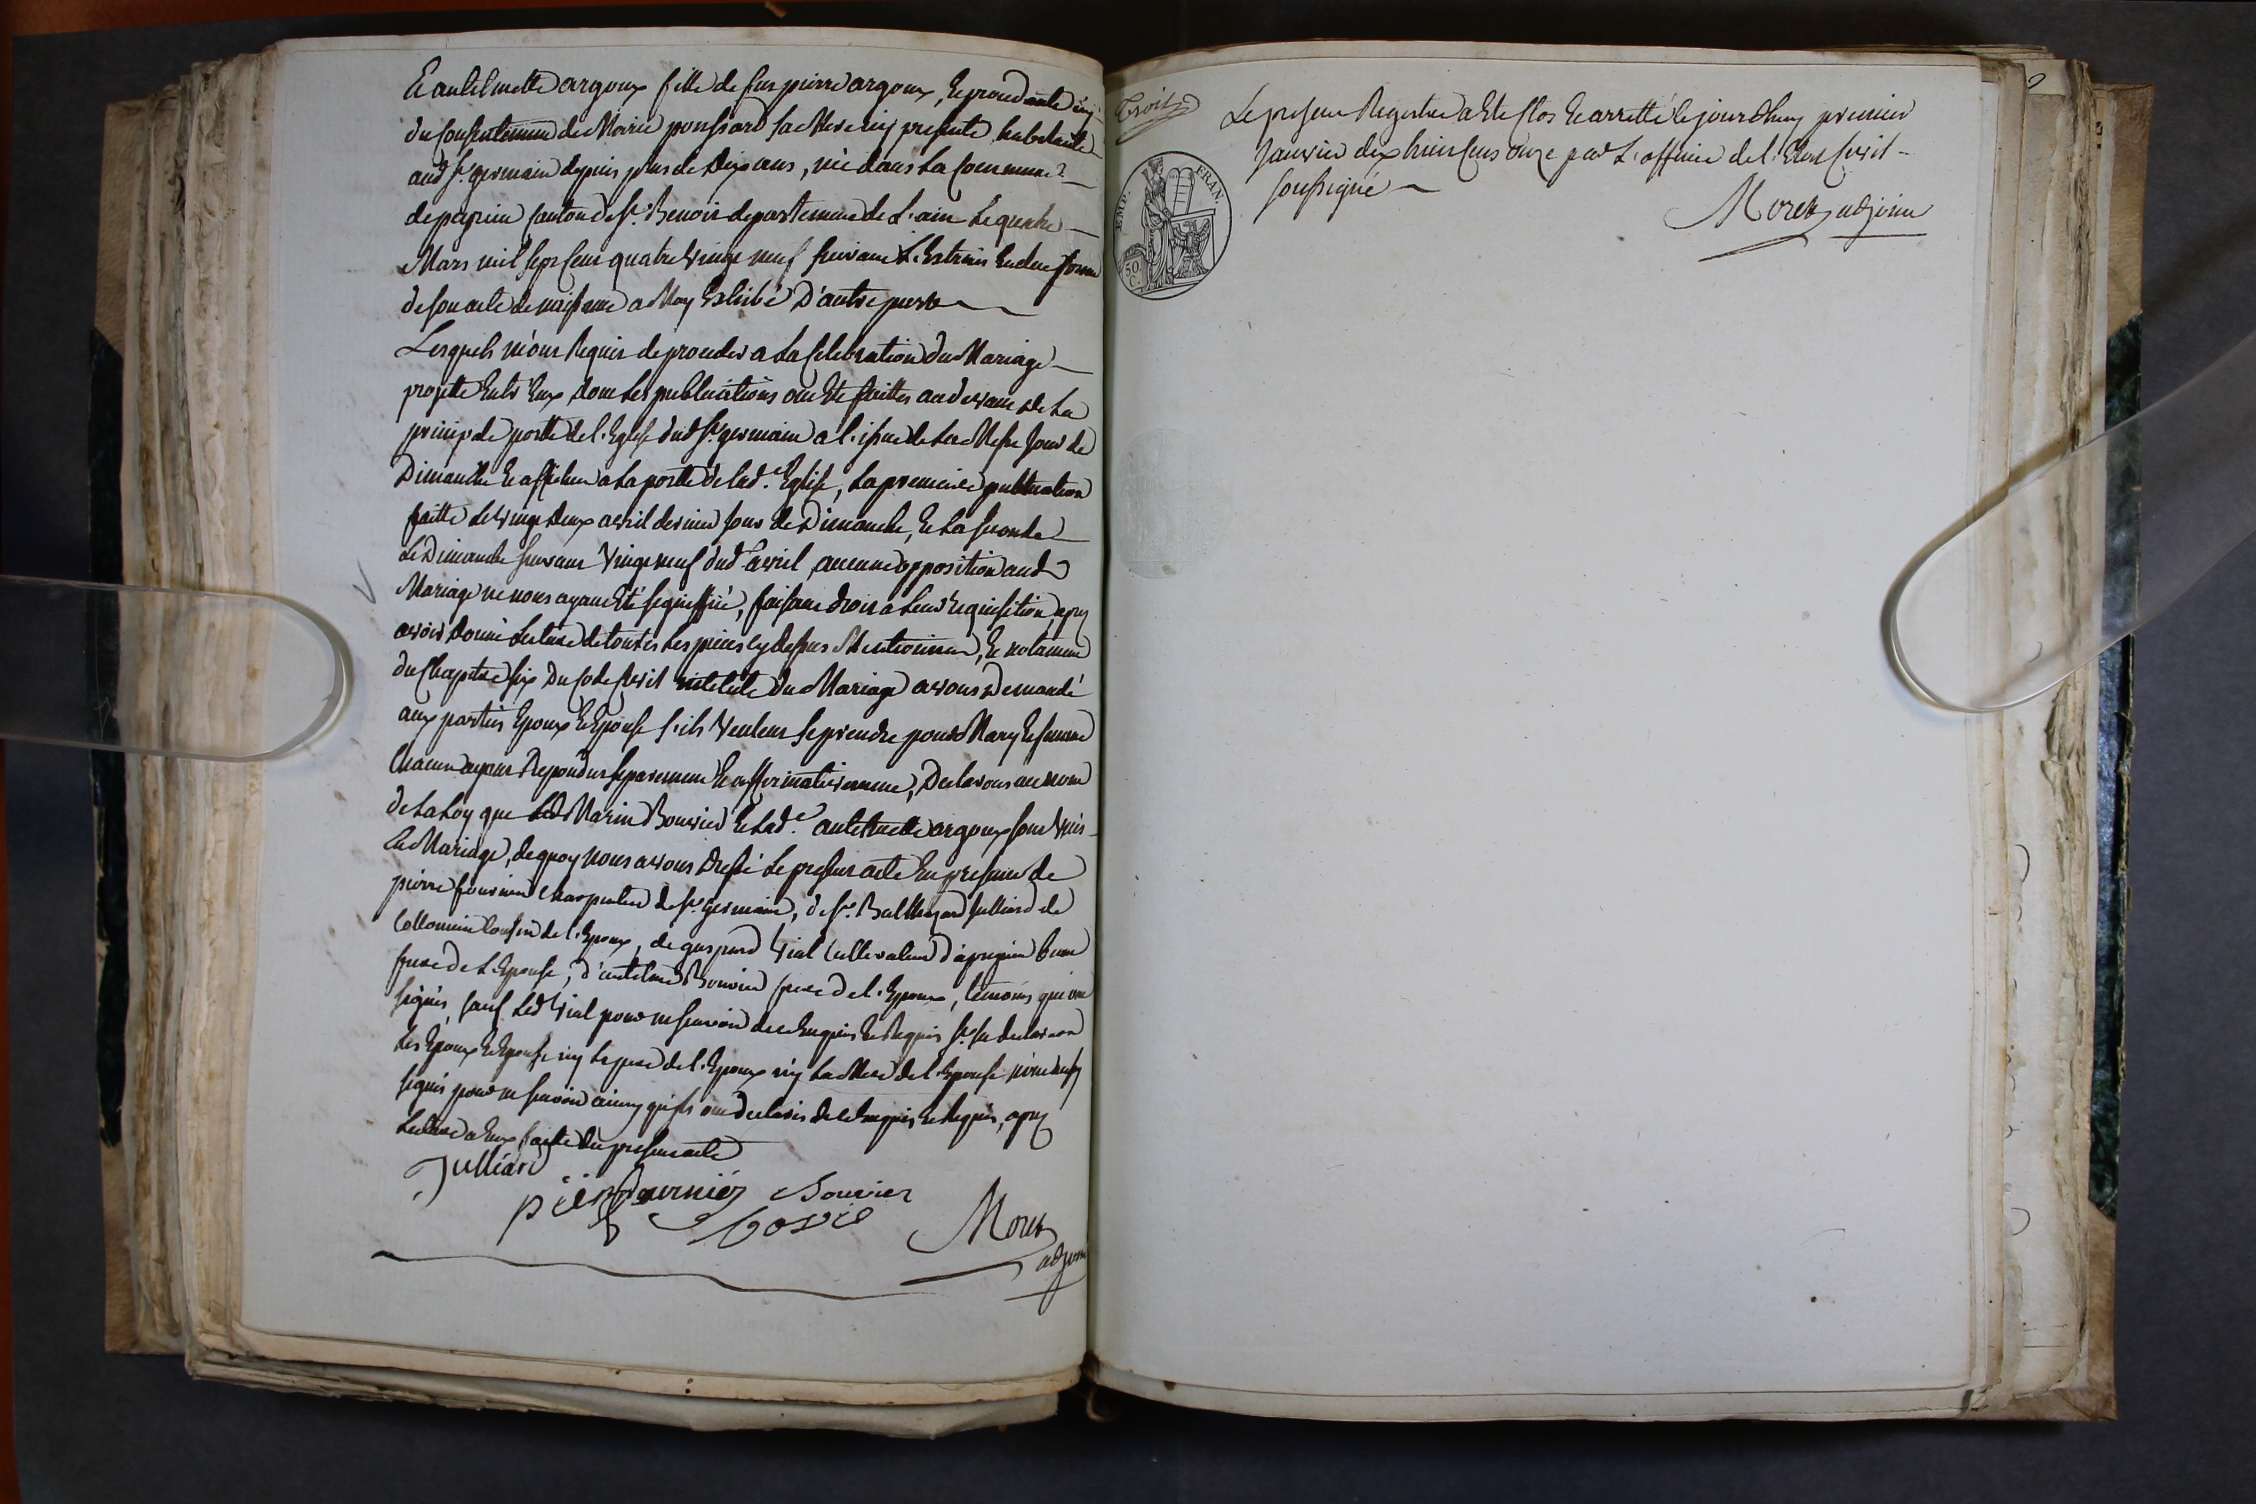 Et antelmette argoux fille de feu pierre argoux, et procedante icy
du consentement de Marie poussard sa Mere icy presente habitante
aud St. germain depuis plus de Dix ans, née dans la Commune
de peyrieu canton de St. Benoit departement de L'ain Le quatre
Mars mil sept Cent quatre vingt neuf suivant L'Extrait En due forme
de son acte de naissance a Moy Exhibé D'autre part
Lesquels m'ont Requis de proceder a La Celebration du Mariage
projetté Entr'Eux dont Les publications ont Eté faittes au devant de La
principale porte de l'Eglise dud St. germain a l'issue de La Messe Jour de
Dimanche Et affichées a La porte de lad.e Eglise, La premiere publication
faitte Le vingt deux avril dernier Jour de Dimanche, Et La seconde
Le Dimanche suivant vingt neuf dud avril, aucune opposition aud
Mariage ne nous ayant Eté signiffiée, faisant droit a Leur requisition, apres
avoir donné Lecture de toutes Les pieces cy dessus Mentionnées, Et notamment
du Chapitre six Du Code Civil intitulé du Mariage avons Demandé
aux parties Epoux Et Epouse s'ils veulent se prendre pour Mary Et femme
Chacun ayant Repondu separement Et affirmativement, Declarons au nom
de La Loy que Led Marin Bouvier Et Lad.e antelmette argoux sont unis
En Mariage, de quoy nous avons Dressé Le present acte En presence de
pierre fournier Charpentier de St. germain, de Sr. Balthazard Julliard de
Collomieu Cousin de l'Epoux, de gaspard vial Cultivateur d'apregnin beau
frere de L'Epouse, d'antelme Bouvier frere de l'Epoux, temoins qui ont
signés, sauf Led vial pour ne sçavoir de ce Enquis Et Requis St. sa declaration
Les Epoux Et Epouse ny Le pere de l'Epoux ny La Mere de l'Epouse n'ont aussy
signés pour ne sçavoir ainsy qu'ils ont declarés de ce Enquis Et Requis, apres
Lecture a Eux faitte du present acte
Julliard
pierre fournier Bouvier
Moret
adjoint
Trois
EMP. FRAN.
50 C.
Le present Registre a Eté Clos Et arretté le jourdhuy premier
Janvier dix huit Cens onze par L'officier de l'Etat Civil
soussigné
Moret adjoint